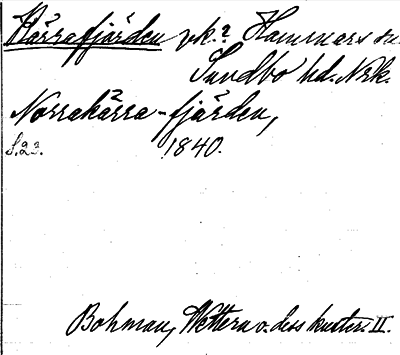 Kärrafjärden vk.? Hammars sn.
Sundbo hd. Nrk.
Norrakärra-fjärden,
S.23. 1840.
Bohman, Wettern o. dess kuster. II.